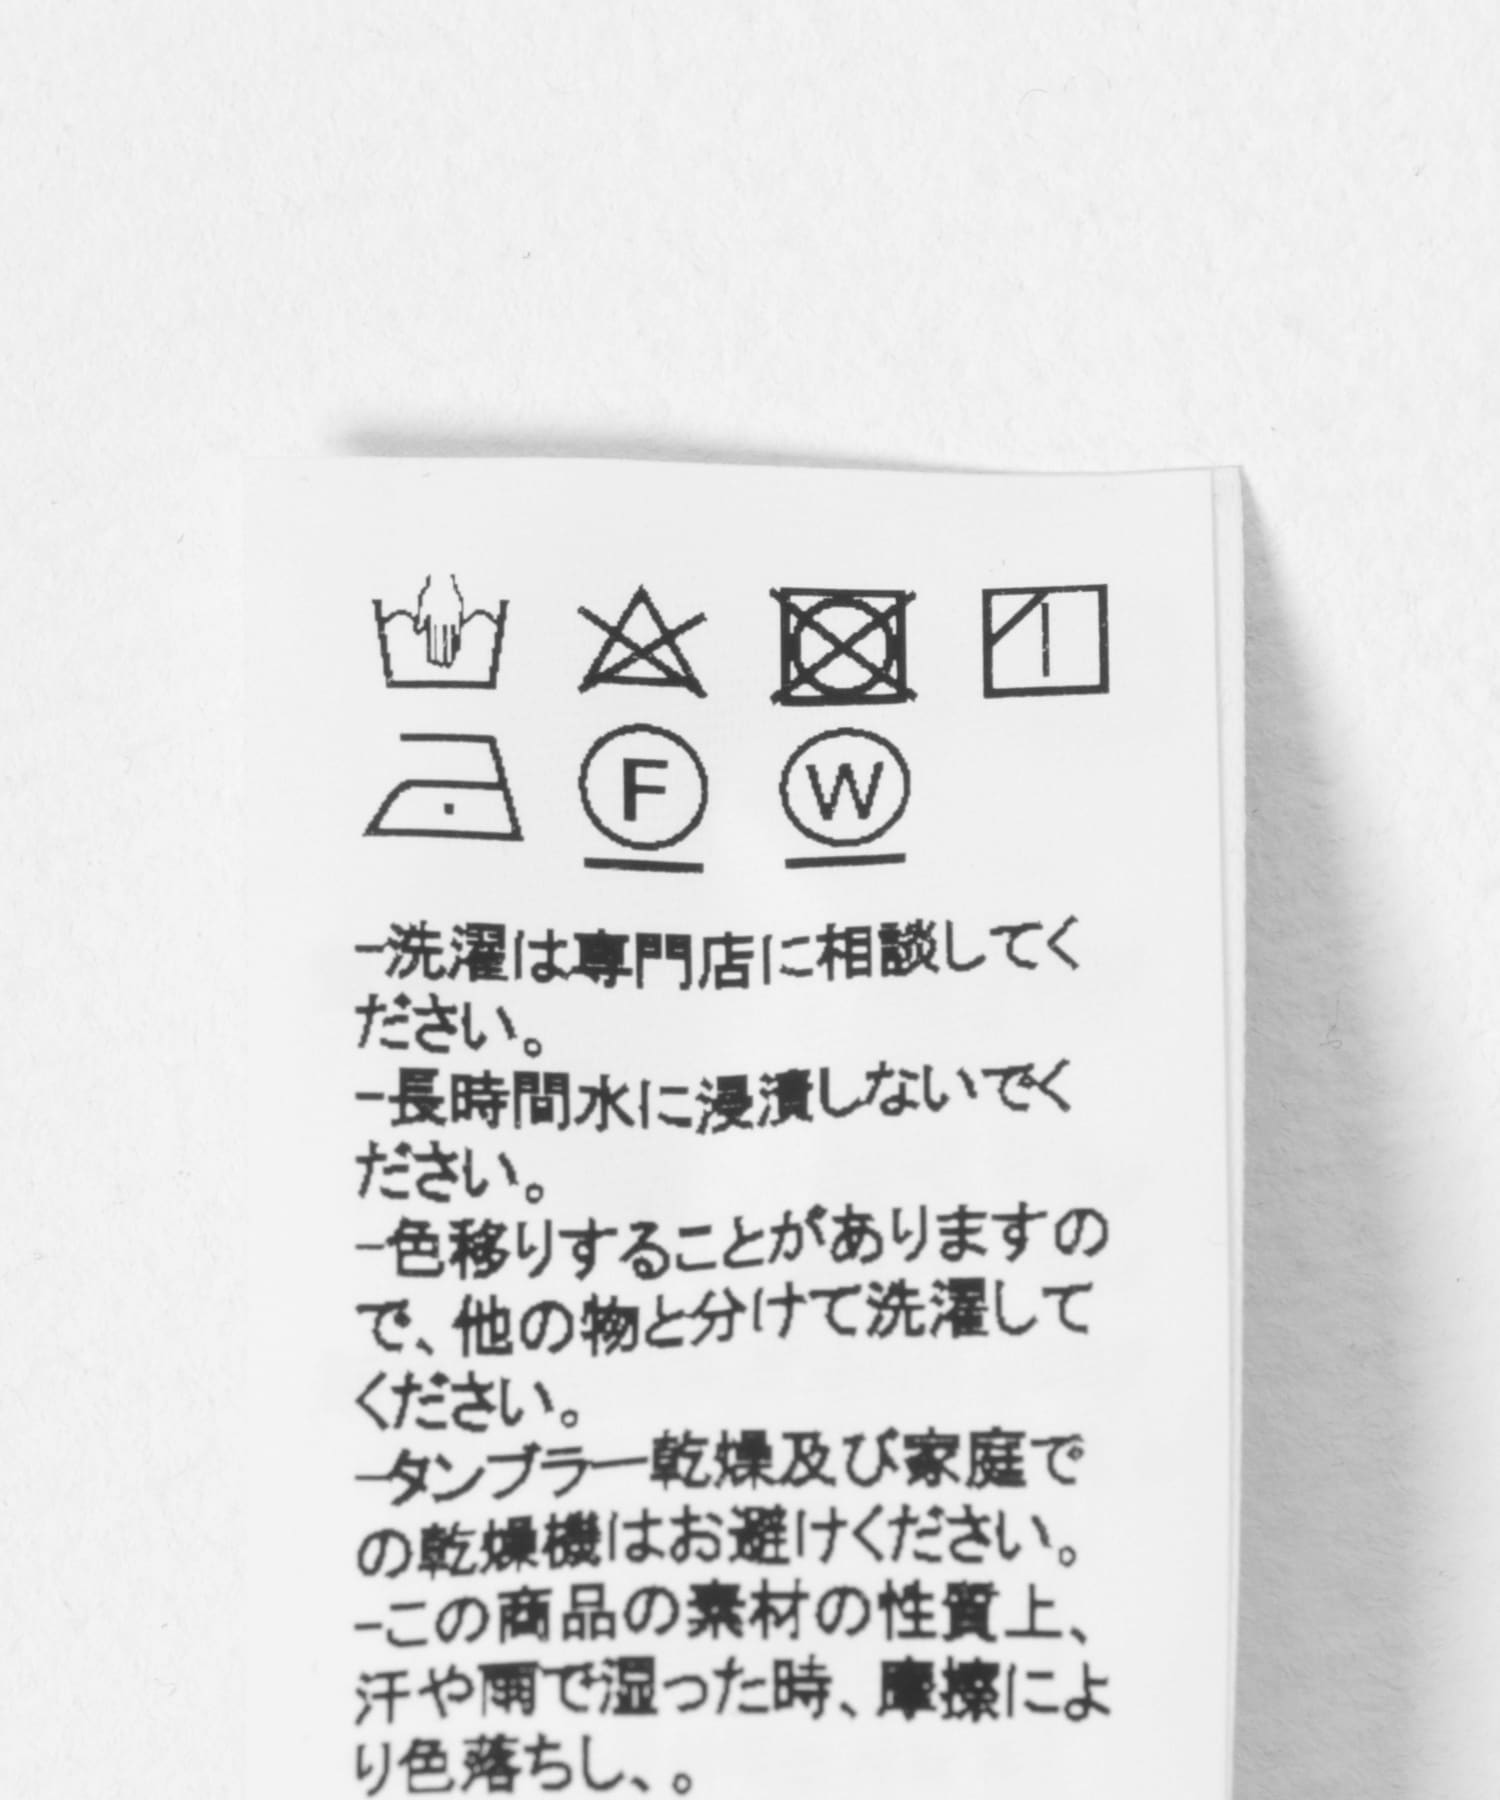 F W
-洗濯は専門店に相談してく
ださい。
-長時間水に浸漬しないでく
ださい。
-色移りすることがありますの
で、他の物と分けて洗濯して
ください。
-タンブラー乾燥及び家庭で
の乾燥機はお避けください。
-この商品の素材の性質上、
汗や雨で湿った時、摩擦によ
り色落ちし、。